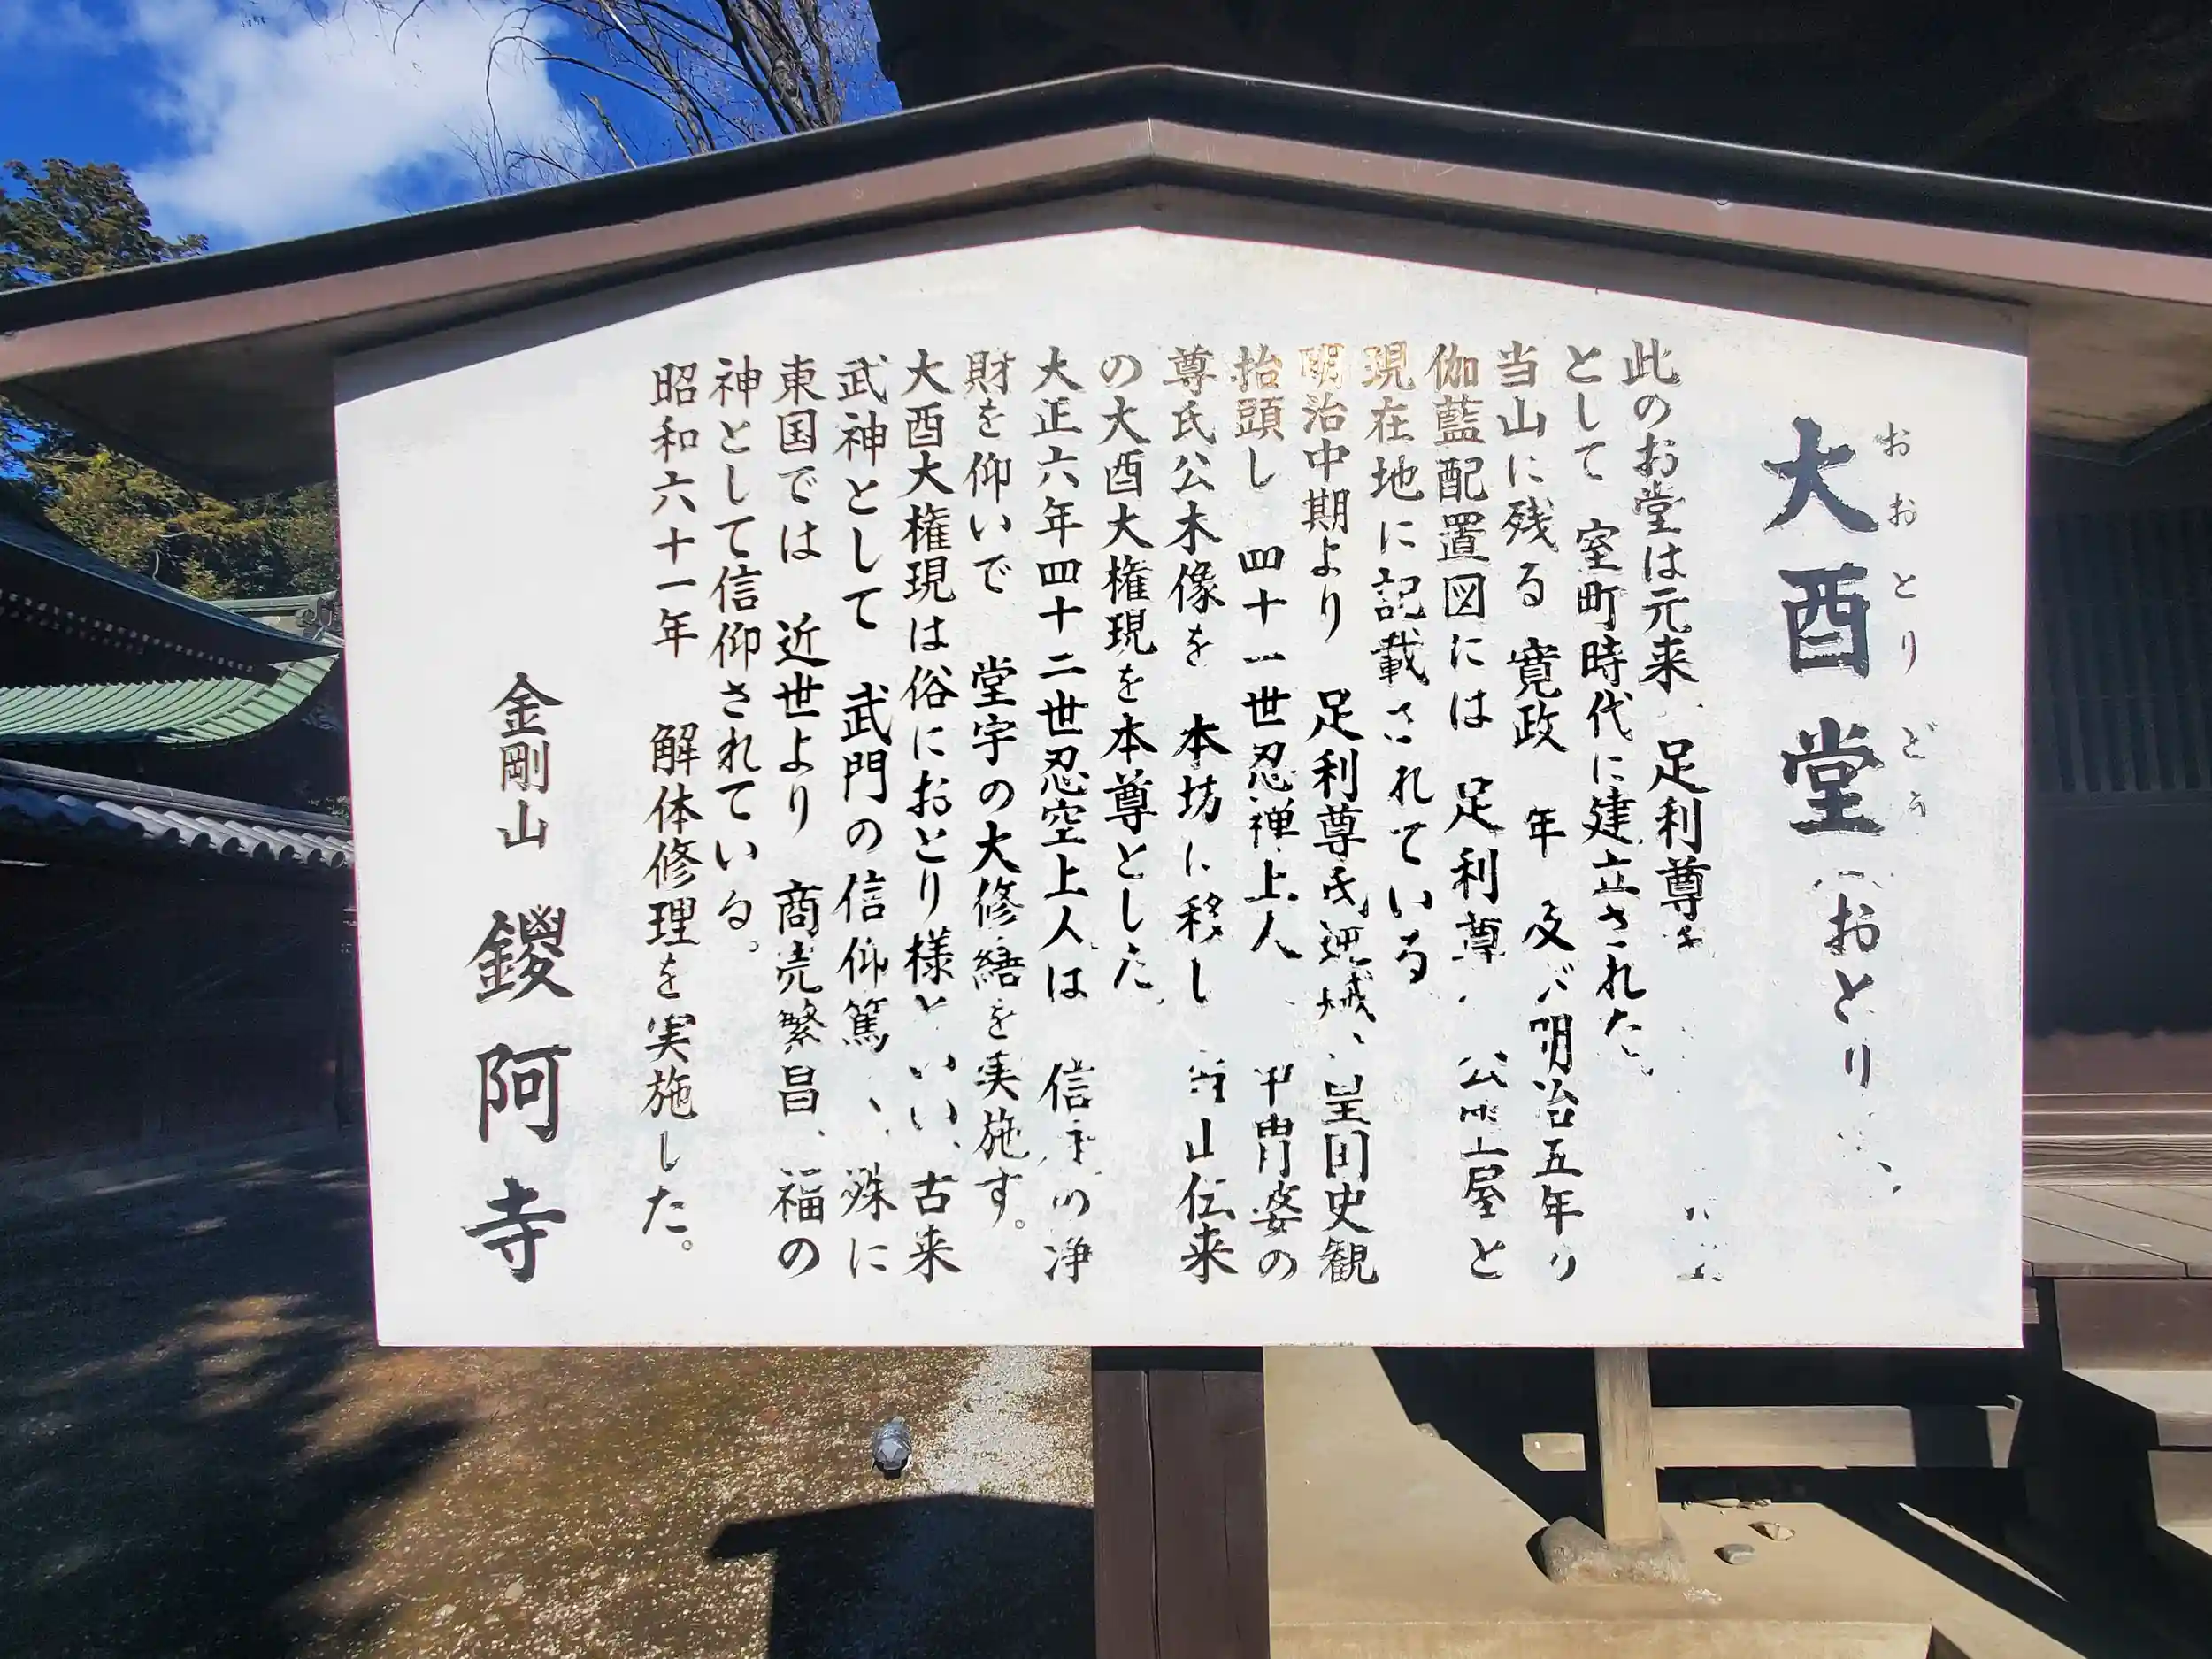 大酉堂（おとり
おおとりどう
此のお堂は元来、足利尊
として 室町時代に建立された。
当山に残る 寛政 年 及び明治五年
伽藍配置図には 足利尊 公 屋と
現在地に記載されている
明治中期より 足利尊氏逆 皇国史観
抬頭し 四十一世忍禅上人 甲冑姿の
尊氏公木像を 本坊に移し 当山伝来
の大酉大権現を本尊とした
大正六年四十二世忍空上人は 信 の浄
財を仰いで 堂宇の大修繕を実施す。
大酉大権現は俗におとり様と いい、古来
武神として 武門の信仰篤 、殊に
東国では 近世より 商売繁昌、福の
神として信仰されている。
昭和六十一年 解体修理を実施した。
金剛山 鑁阿寺